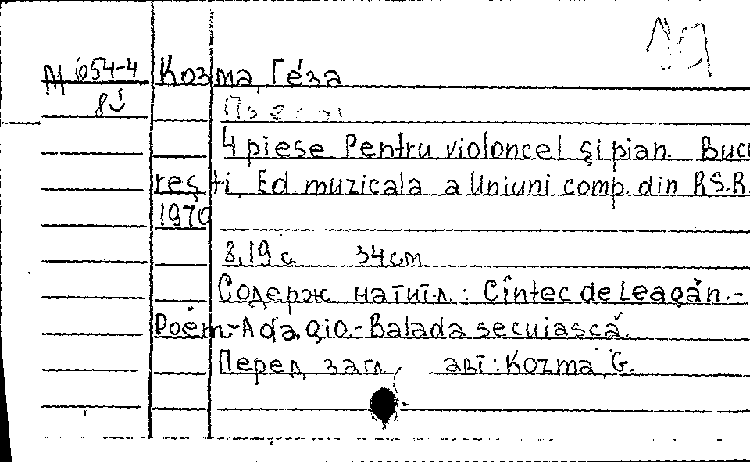 М 1054-4 Козма, Гéза
8
4 piese Pentru violoncel şi pian. Bucu
reşti, Ed. muzicala a Uniuni comp. din R.S.R.
1970
8,19 с 34 cm
Содерж на тит л.: Cîntec de Leagăn.-
Poem-Adagio-Balada secuiască.
Перед загл. авт: Kozma G.